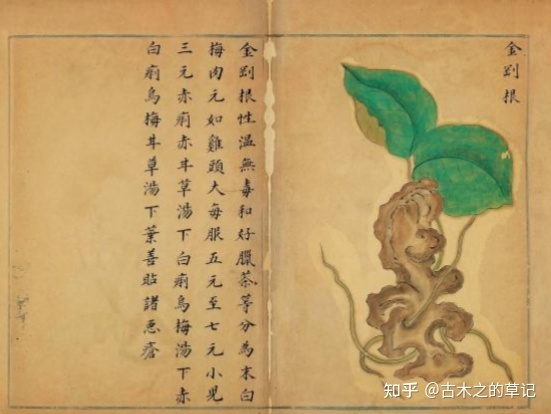 金剛根
金剛根性温無毒和好臘茶等分為末白
梅肉元如雞頭大每服五元至七元小兒
三元赤痢赤甘草湯下白痢烏梅湯下赤
白痢烏梅甘草湯下葉善貼諸惡瘡
知乎 @古木之的草记